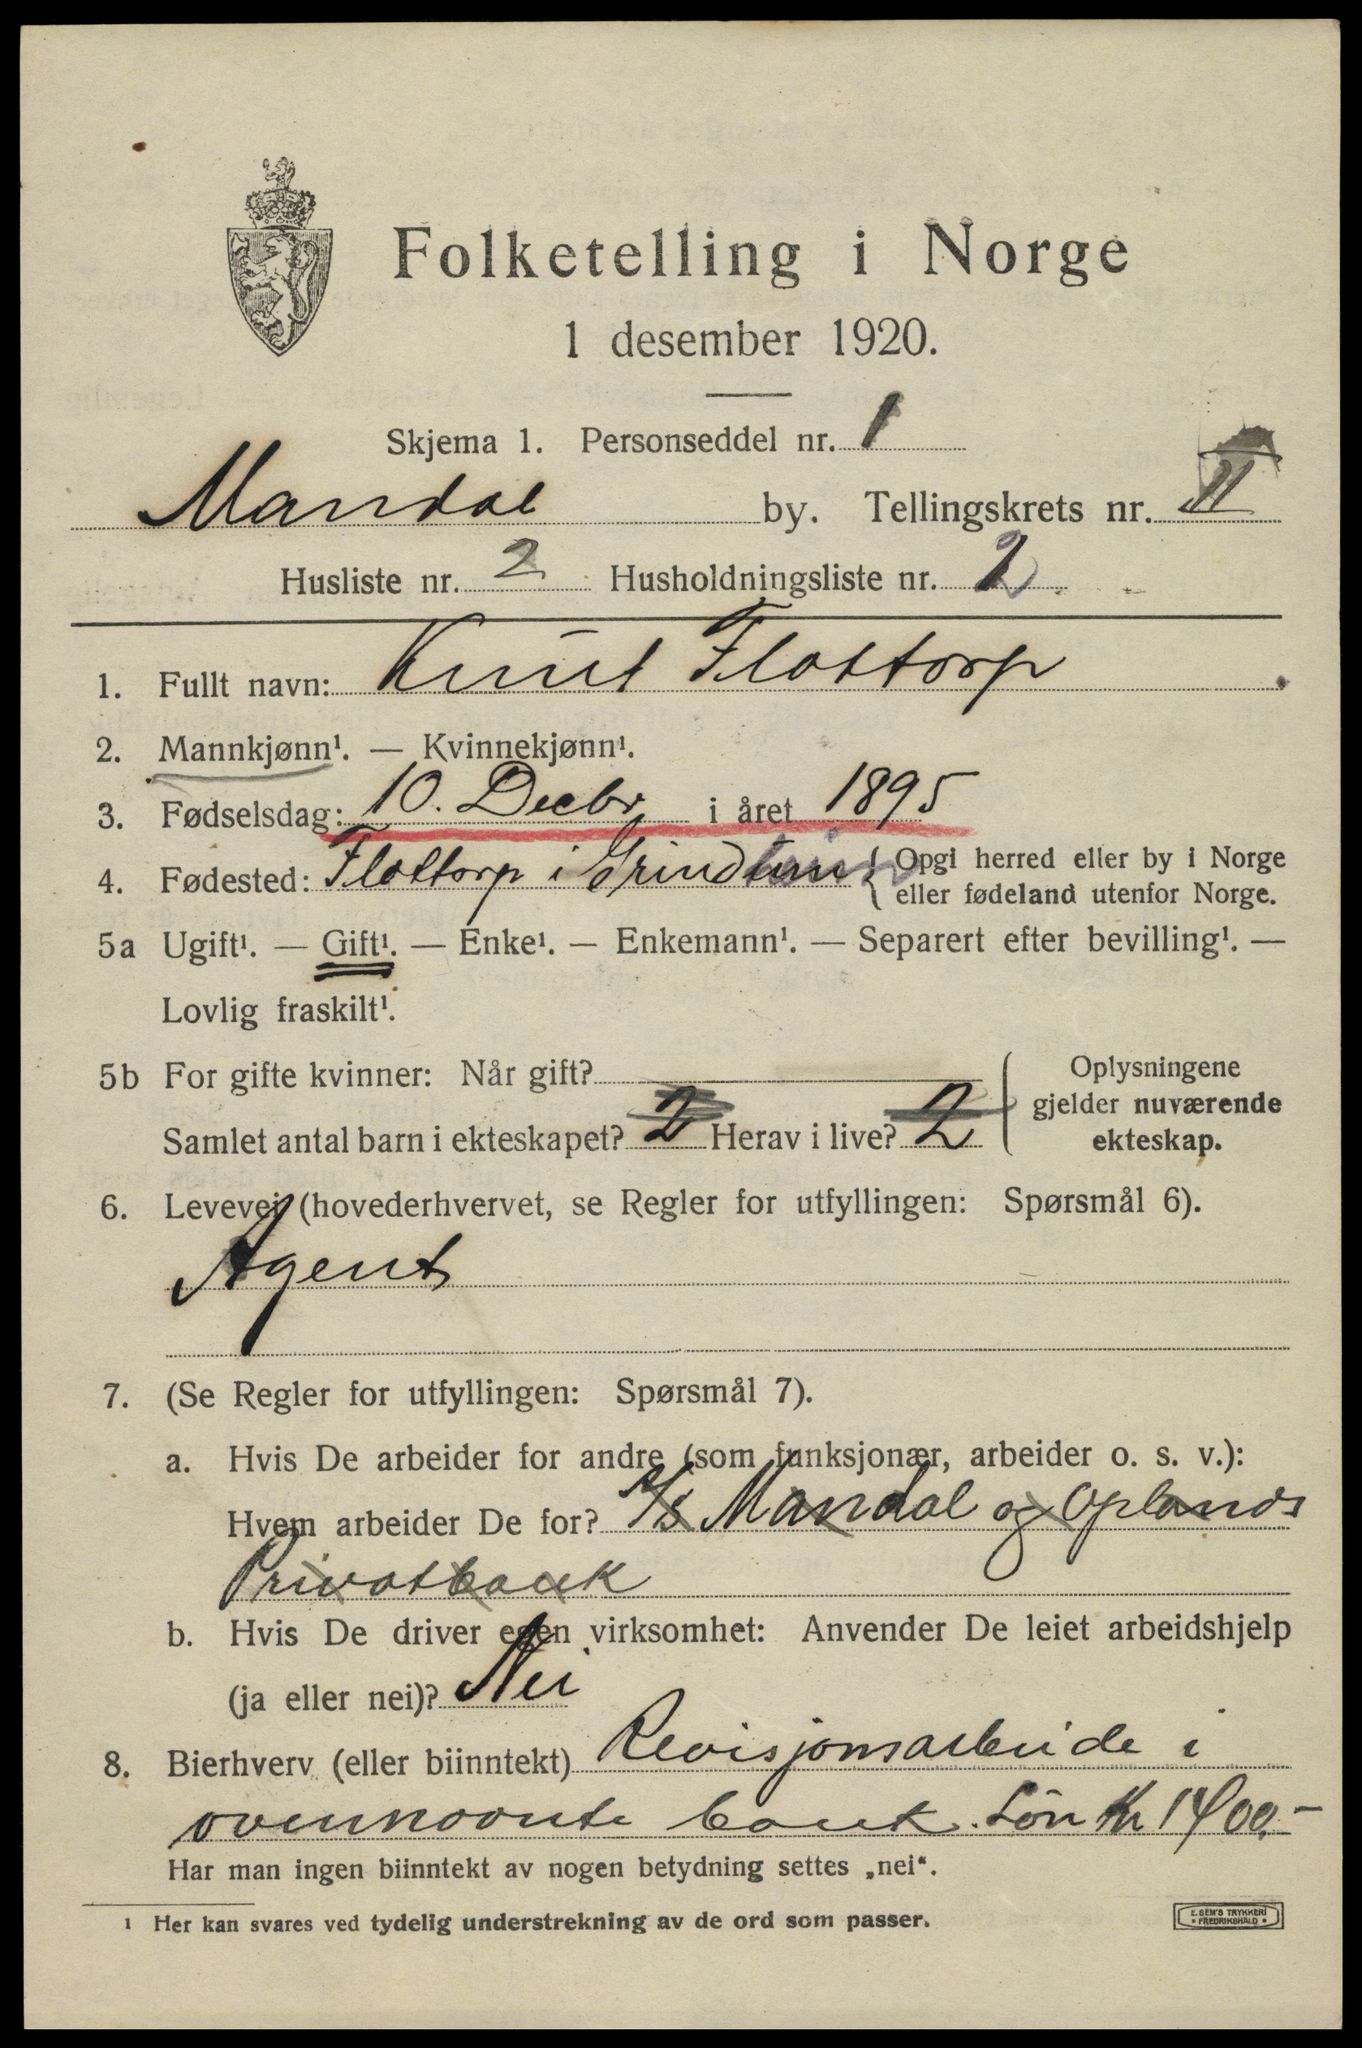 Folketelling i Norge
1 desember 1920.
Skjema 1. Personseddel nr. 1
Mandal by. Tellingskrets nr. II
Husliste nr. 2 Husholdningsliste nr. 2
1. Fullt navn: Knut Flottorp
2. Mannkjønn¹. — Kvinnekjønn¹.
3. Fødselsdag: 10. Decbr i året 1895
4. Fødested: Flottorp i Grindum { Opgi herred eller by i Norge
eller fødeland utenfor Norge.
5a Ugift¹. — Gift¹. — Enke¹. — Enkemann¹. — Separert efter bevilling¹. —
Lovlig fraskilt¹.
5b For gifte kvinner: Når gift?
Samlet antal barn i ekteskapet? 2 Herav i live? 2
Oplysningene
gjelder nuværende
ekteskap.
6. Levevei (hovederhvervet, se Regler for utfyllingen: Spørsmål 6).
Agent
7. (Se Regler for utfyllingen: Spørsmål 7).
a. Hvis De arbeider for andre (som funksjonær, arbeider o. s. v.):
Hvem arbeider De for? A/S Mandal og Oplands
Privatbank
b. Hvis De driver egen virksomhet: Anvender De leiet arbeidshjelp
(ja eller nei)? Nei
8. Bierhverv (eller biinntekt) Revisjonsarbeide i
ovennævnte bank. Løn Kr 1400.-
Har man ingen biinntekt av nogen betydning settes „nei“.
¹ Her kan svares ved tydelig understrekning av de ord som passer.
E. SEM'S TRYKKERI
FREDRIKSHALD